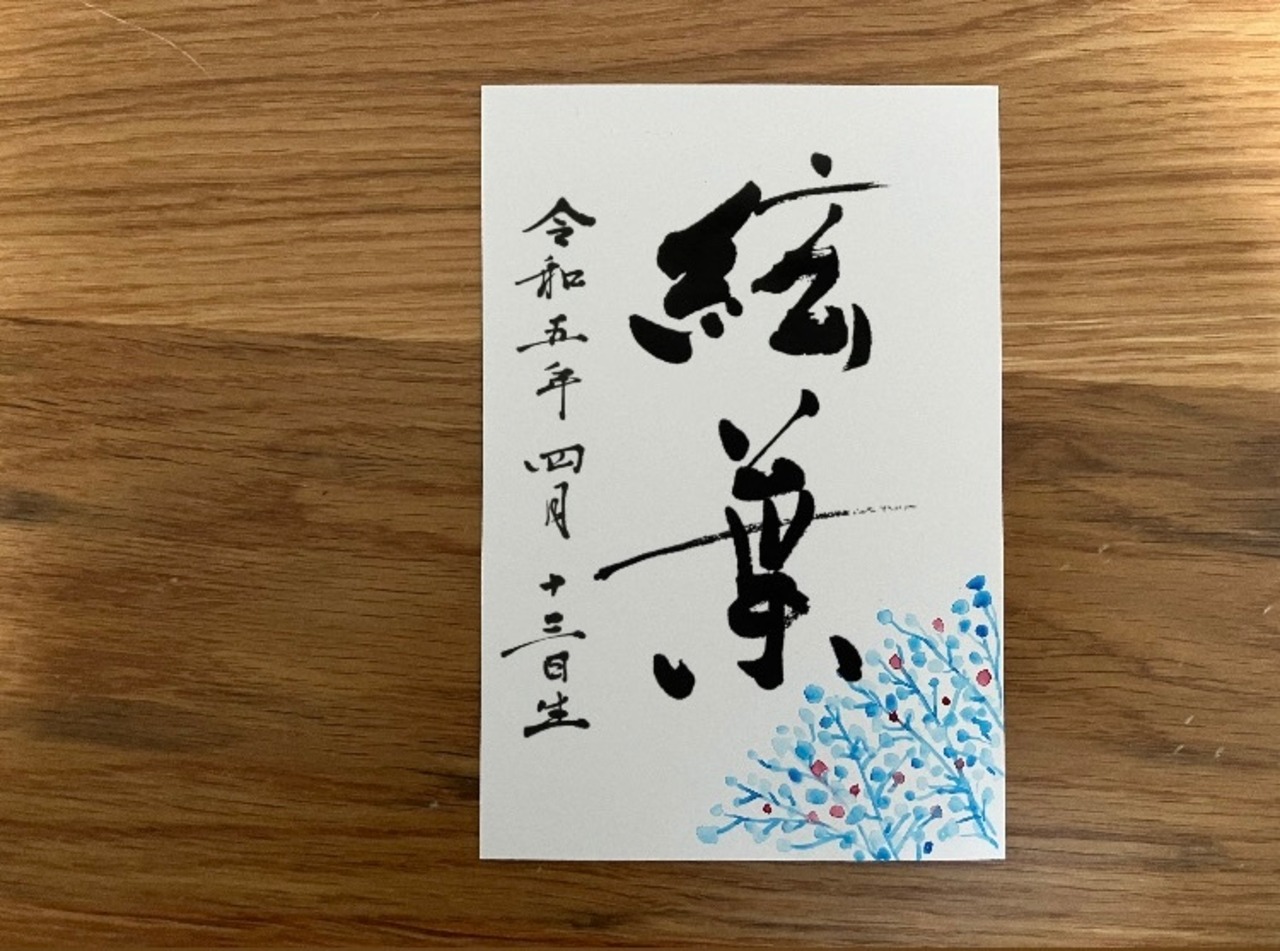 絃葉
令和五年 四月 十三日生